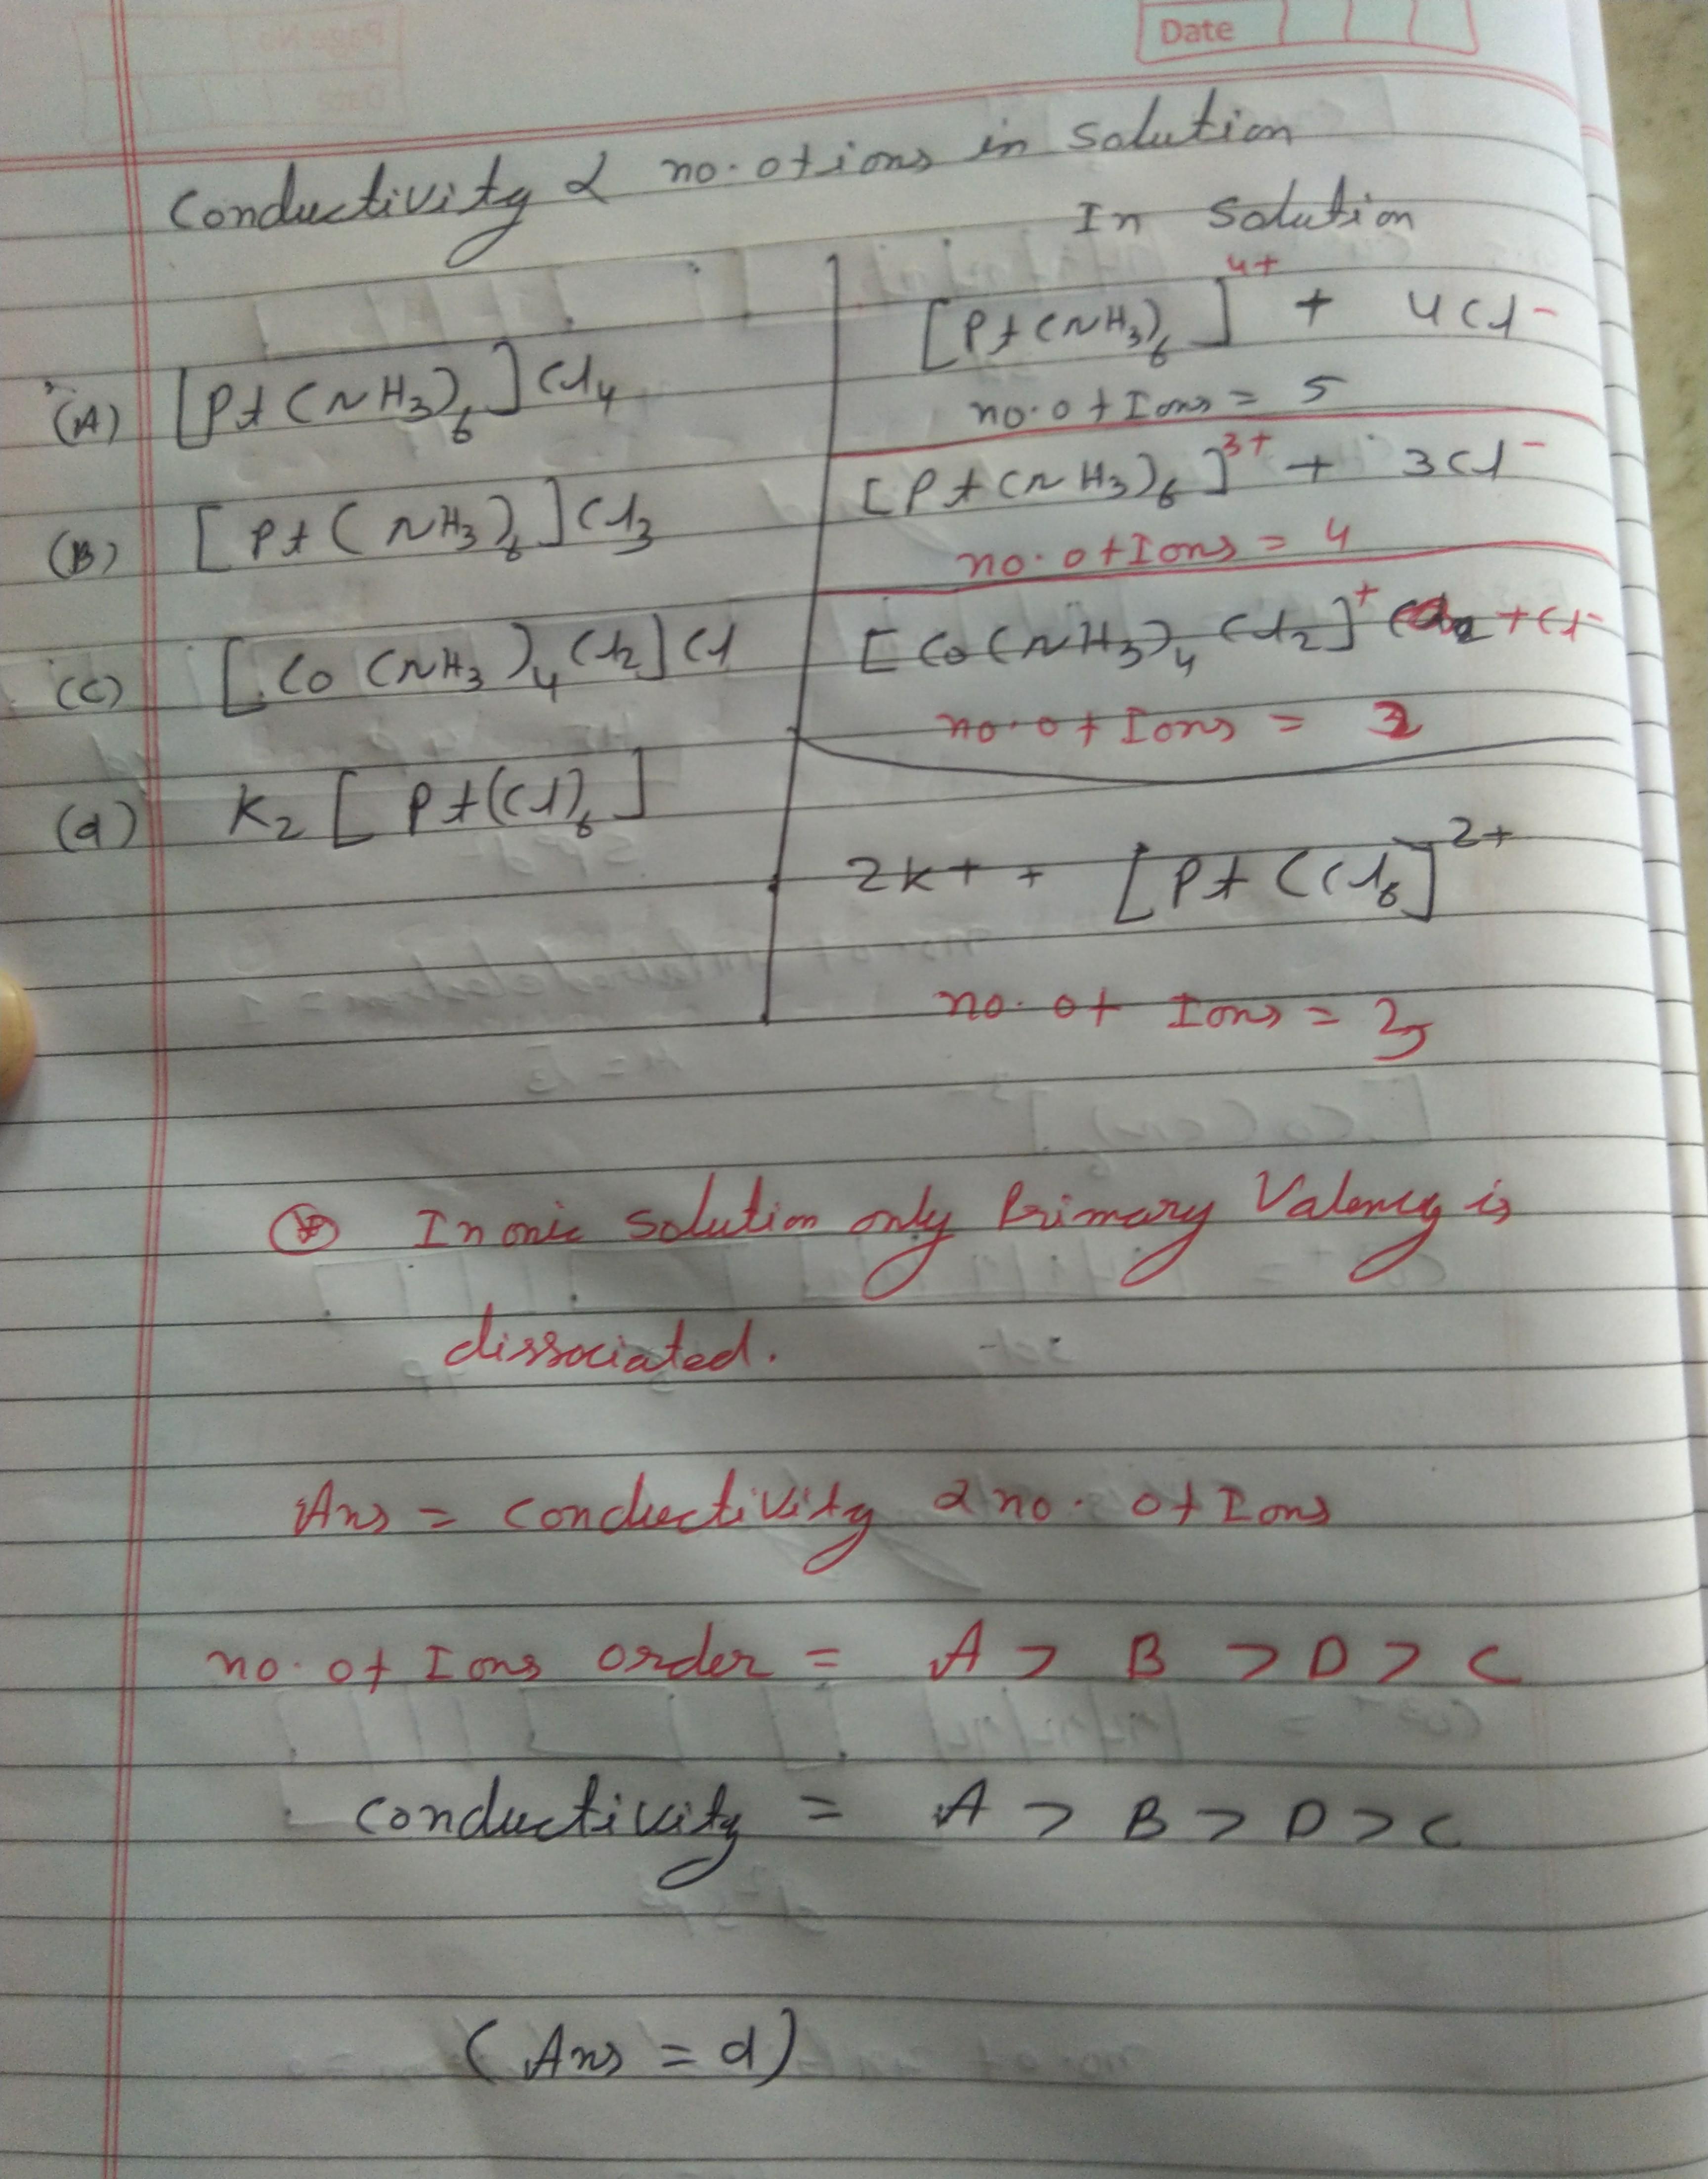 Date
Conductivity α no. of ions in solution
In solution
(A) [Pt(NH3)6]Cl4
[Pt(NH3)6]4+ + 4Cl-
no. of Ions = 5
(B) [Pt(NH3)6]Cl3
[Pt(NH3)6]3+ + 3Cl-
no. of Ions = 4
(C) [Co(NH3)4Cl2]Cl
[Co(NH3)4Cl2]+ + Cl-
no. of Ions = 2
(d) K2[Pt(Cl)6]
2K+ + [Pt(Cl6]2+
no. of Ions = 3
In onic solution only Primary Valency is
dissociated.
Ans = conductivity α no. of Ions
no. of Ions order = A > B > D > C
conductivity = A > B > D > C
(Ans = d)